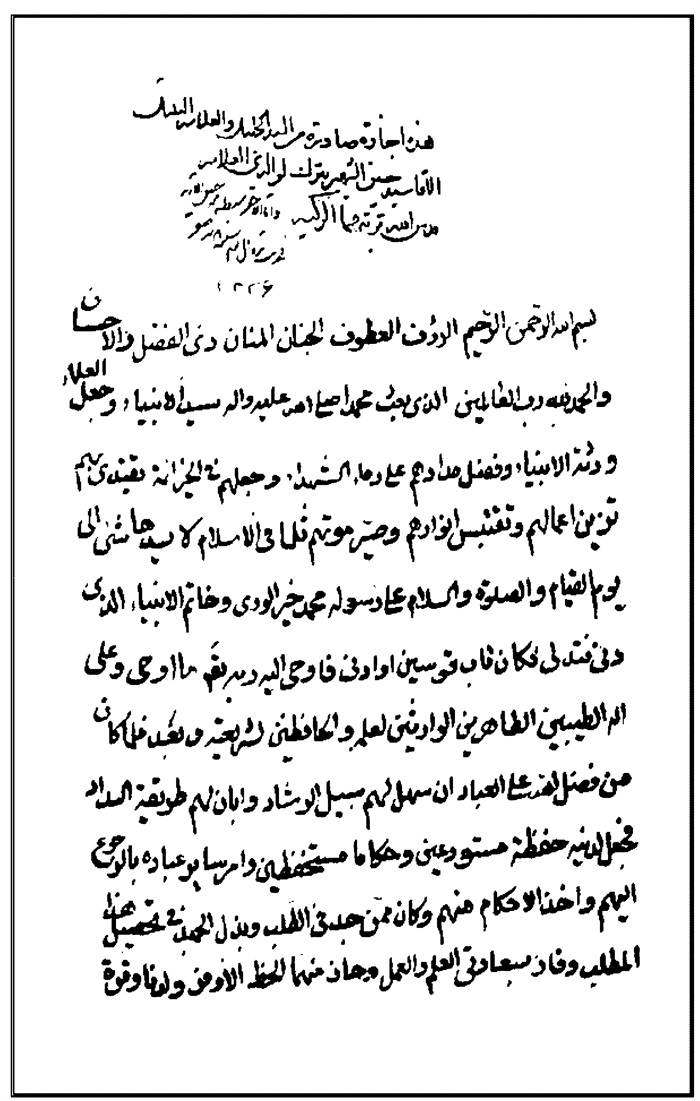 هذه اجازة صادرة من السيد الجليل والعلامة النبيل
الآقا سيد حسين الشهير بترك لوالدي العلامة
قدس الله تربته الزكية
۱۳۳۶
بسم الله الرحمن الرحيم الرؤف العطوف الحنان المنان ذى الفضل والاحسان
والحمد لله رب العالمين الذى بعث محمدا صلى الله عليه واله سيد الانبياء وجعل العلماء
ورثة الانبياء وفضل مدادهم على دماء الشهداء وجعلهم يقتدى بهم
تزين اعمالهم وتقتبس انوارهم وصير موتهم ثلما فى الاسلام لا يسدها شئ الى
يوم القيام والصلوة والسلام على رسوله محمد خير الورى وخاتم الانبياء الذى
دنى فتدلى فكان قاب قوسين او ادنى فاوحى اليه ربه ما اوحى وعلى
اله الطيبين الطاهرين الوارثين لعلمه والحافظين لشريعته وبعد فلما كان
من فضل الله على العباد ان سهل لهم سبيل الرشاد وابان لهم طريقة السداد
فجعل لدينه حفظة مستودعين وحكاما مستحفظين وامر ساير عباده بالرجوع
اليهم واخذ الاحكام منهم وكان ممن جد فى الطلب وبذل الجهد فى تحصيل هذا
المطلب وفاز بسعادتى العلم والعمل وحاز منهما الحظ الاوفر ولدنا وقرة